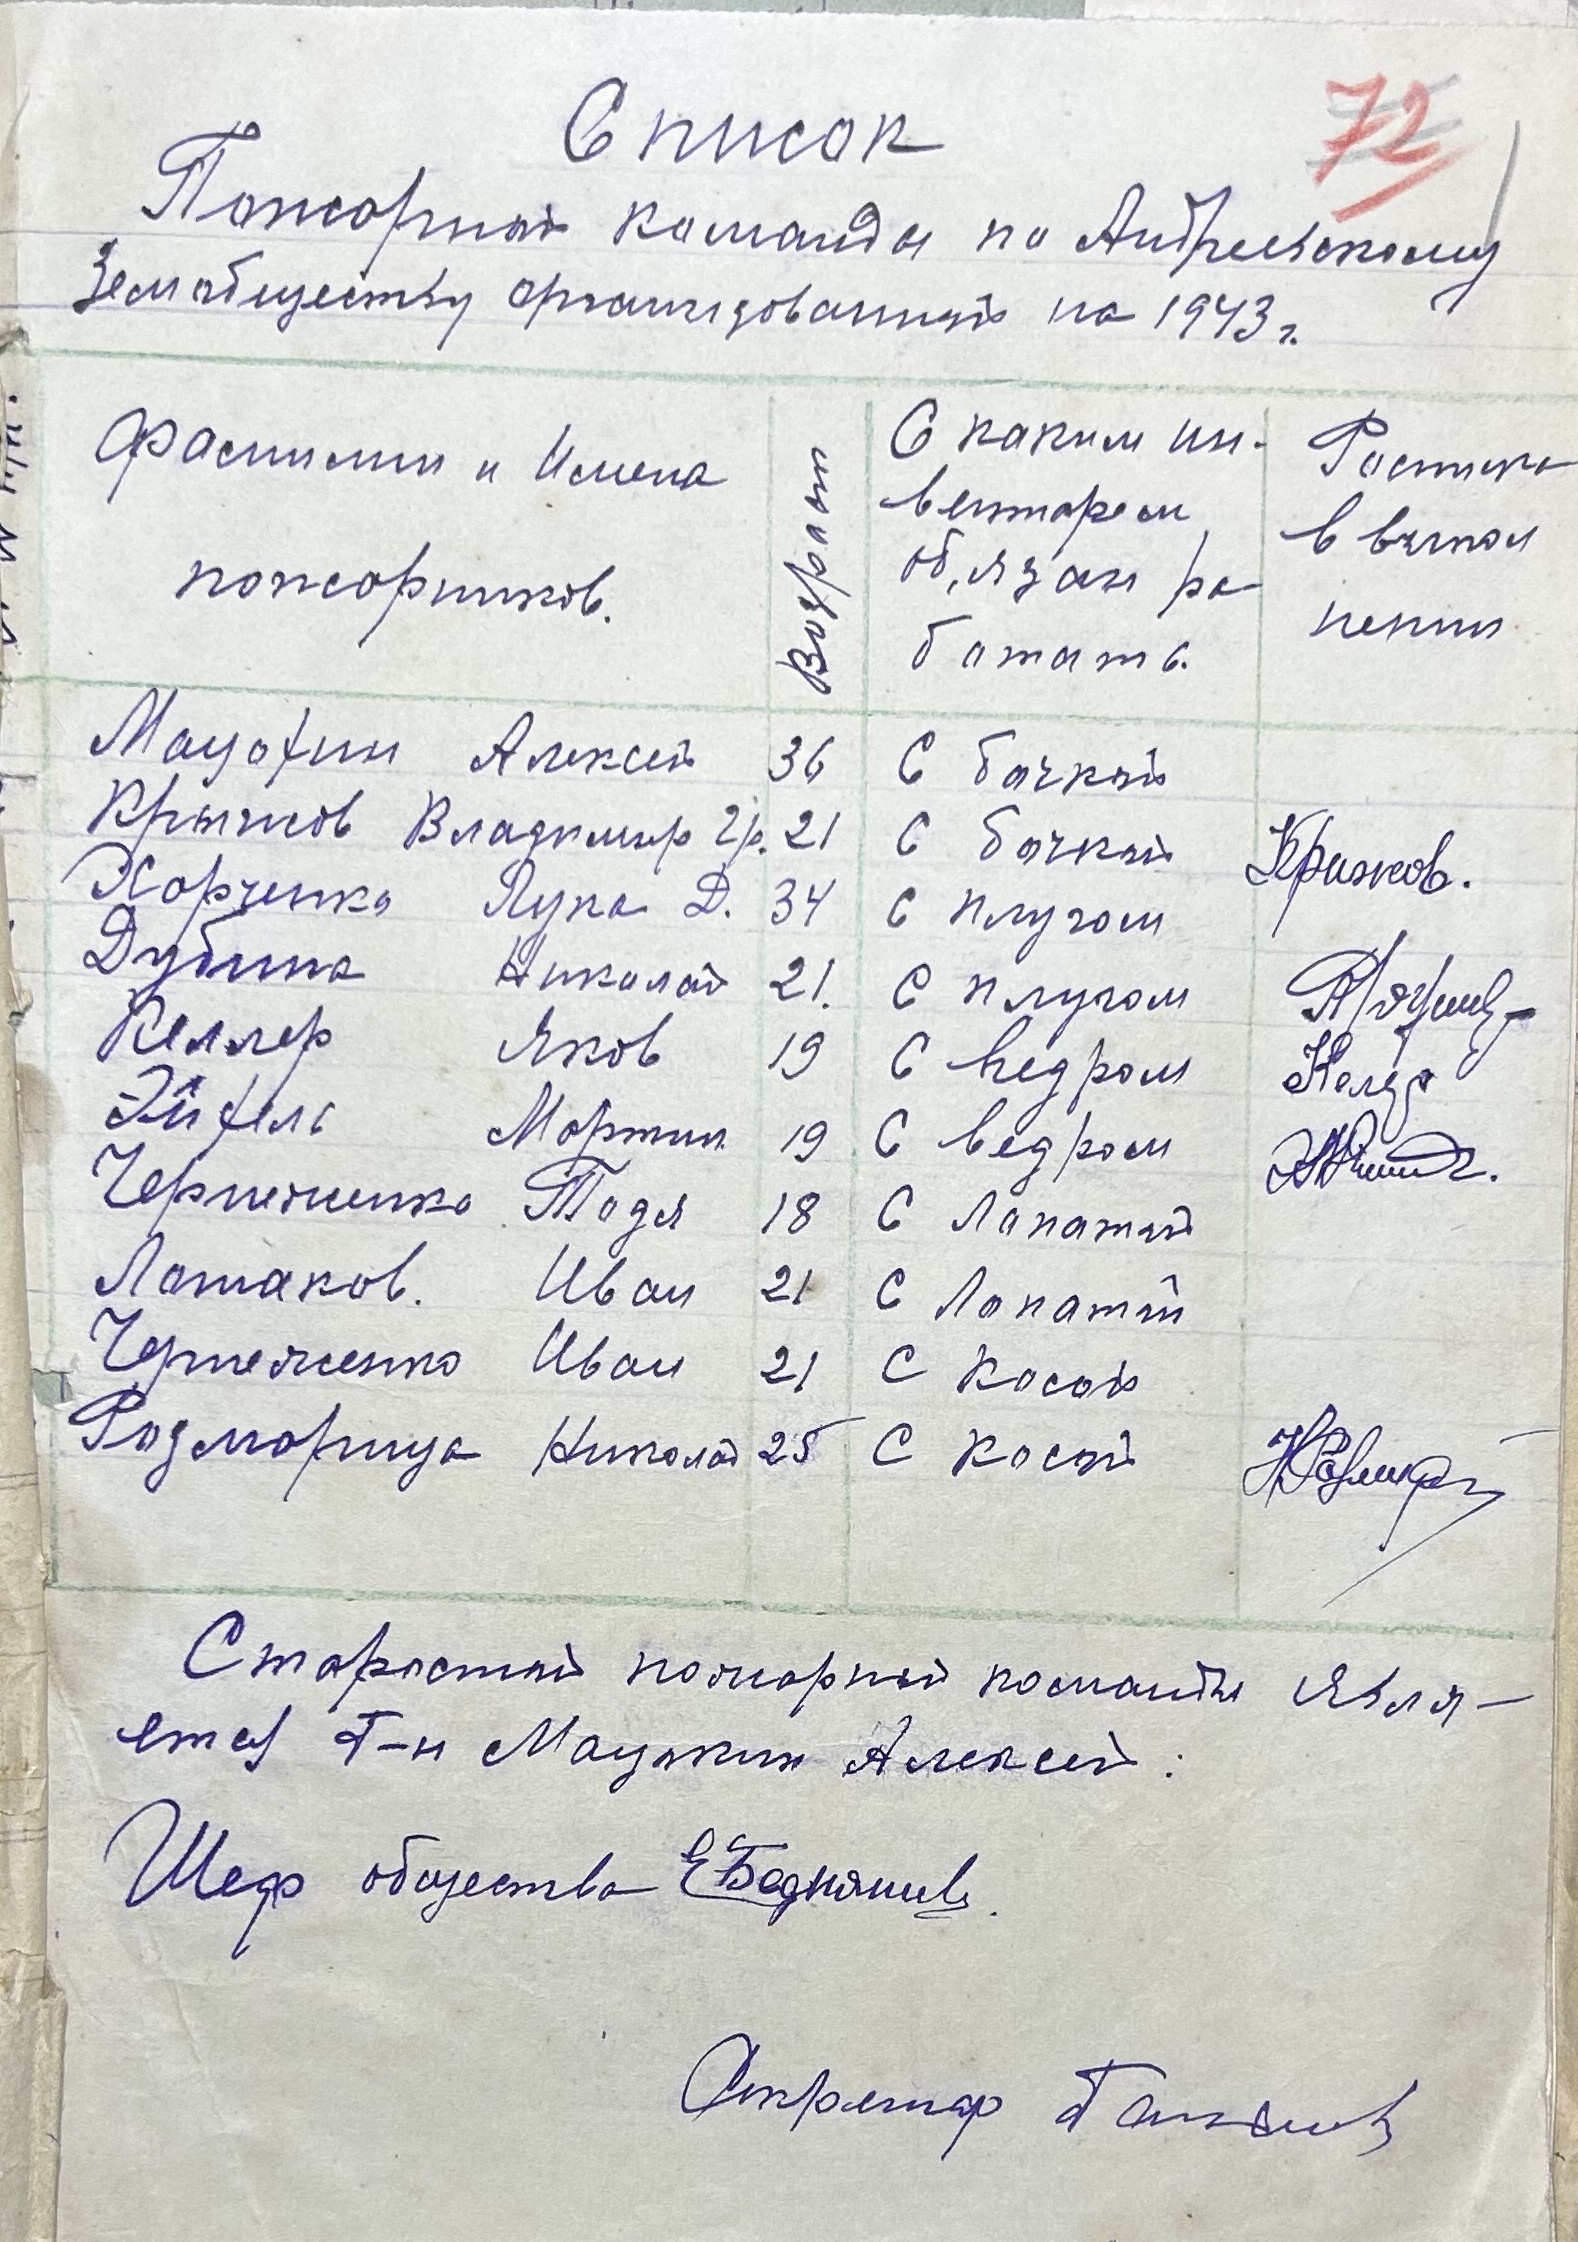 72
Список
Пожарной команды по Андреевскому
Земобществу организованной на 1943 г.
Фамилии и Имена пожарников.
Возраст
С каким ин-
вентарем
об,язан ра-
ботать.
Роспись
в выпол
нении
Алексей 36 С бочкой
Крыжов Владимир Гр. 21 С бочкой Крыжков.
Харченко Лука Д. 34 С плугом
Дубина Николай 21. С плугом
Келлер Яков 19 С ведром
Эйфель Мартин 19 С ведром
Чернеженко Тодя 18 С Лопатой
Лотаков. Иван 21 С Лопатой
Чернеженко Иван 21 С Косой
Розмарица Николай 25 С Косой
Старостой пожарной команды Явля-
ется Г-н Алексей.
Шеф общества
Секретар